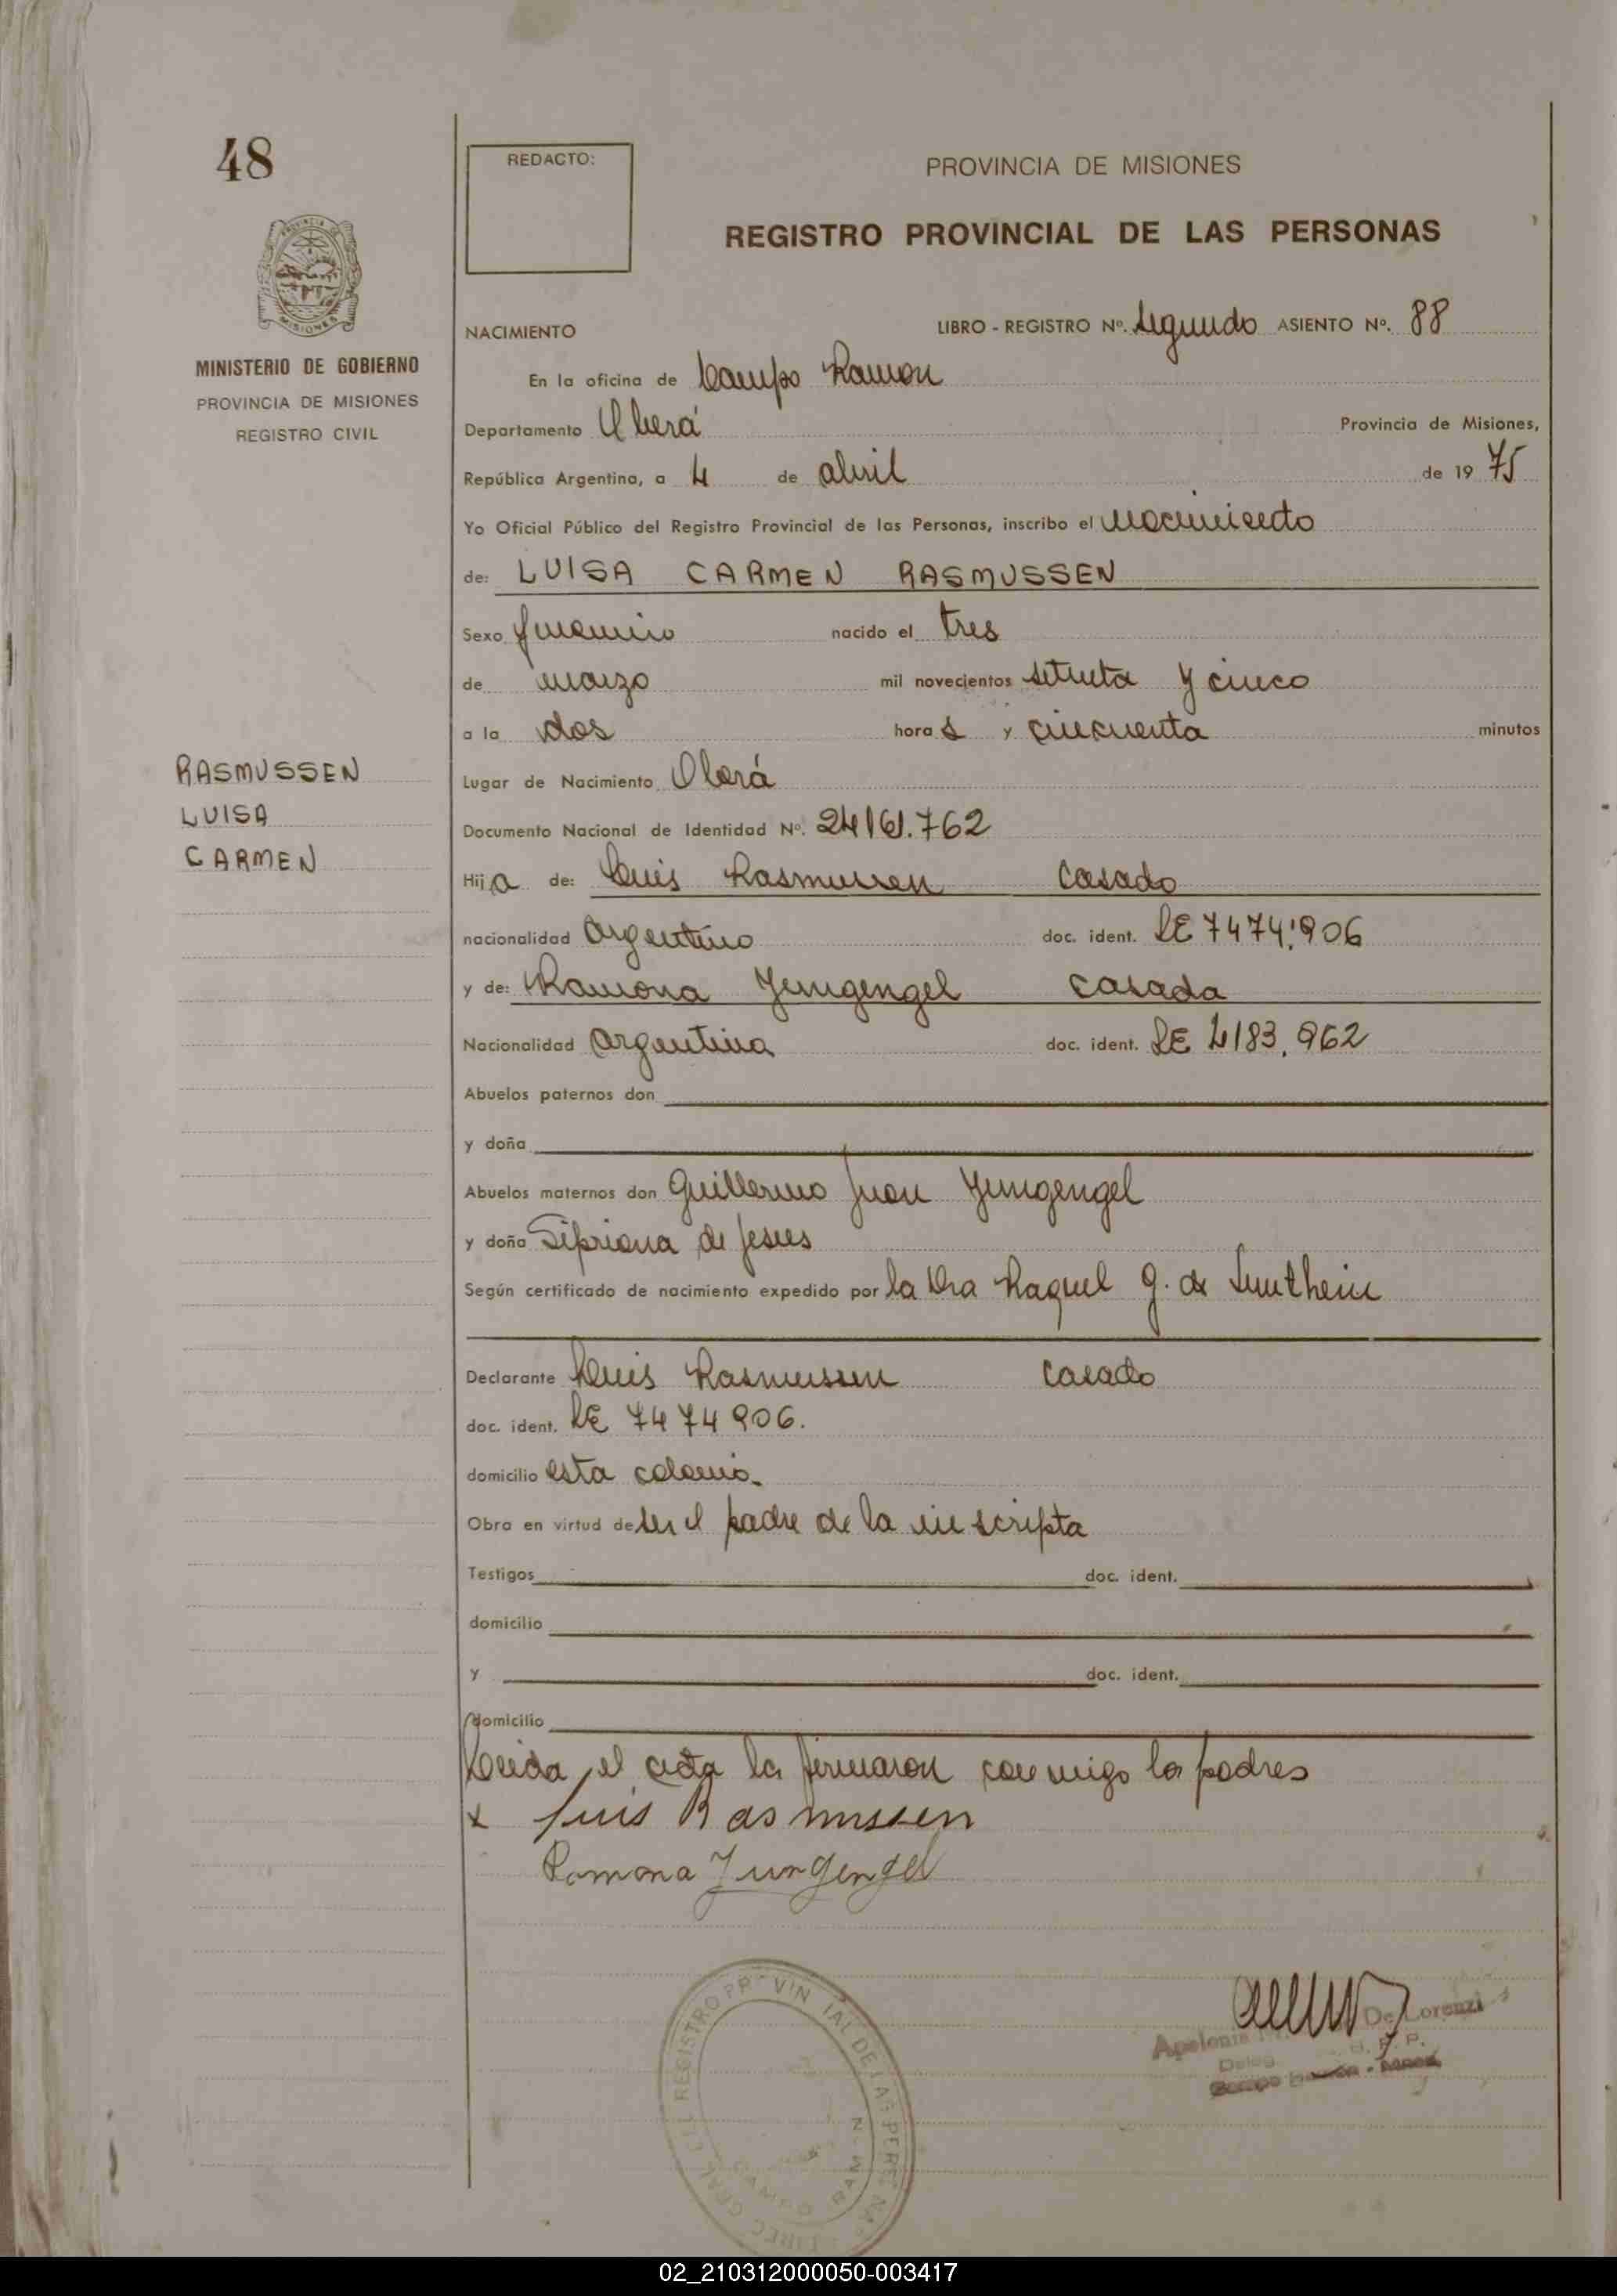 48
REDACTO:
PROVINCIA DE MISIONES
REGISTRO PROVINCIAL DE LAS PERSONAS
MISIONES
MINISTERIO DE GOBIERNO
PROVINCIA DE MISIONES
REGISTRO CIVIL
NACIMIENTO LIBRO - REGISTRO Nº. Segundo ASIENTO Nº. 88
En la oficina de Campo Ramon
Departamento Oberá Provincia de Misiones,
República Argentina, a 4 de abril de 19 75
Yo Oficial Público del Registro Provincial de las Personas, inscribo el Nacimiento
de: LUISA CARMEN RASMUSSEN
Sexo femenino nacido el tres
de marzo mil novecientos setenta y cinco
a la dos hora s y cincuenta minutos
RASMUSSEN
LUISA
CARMEN
Lugar de Nacimiento Oberá
Documento Nacional de Identidad Nº. 24161.762
Hij a de: Luis Rasmussen casado
nacionalidad argentino doc. ident. LE 7474.906
y de: Ramona Jungengel casada
Nacionalidad argentina doc. ident. LE 4183.962
Abuelos paternos don
y doña
Abuelos maternos don Guillermo Juan Jungengel
y doña Sipriana de Jesus
Según certificado de nacimiento expedido por la Dra Raquel G. de
Declarante Luis Rasmussen casado
doc. ident. LE 7474906.
domicilio esta colonia.
Obra en virtud de ser el padre de la inscripta
Testigos doc. ident.
domicilio
y doc. ident.
domicilio
Leida el acta la firmaron conmigo los padres
x Luis Rasmussen
Ramona Jungengel
De Lorenzi
02_210312000050-003417